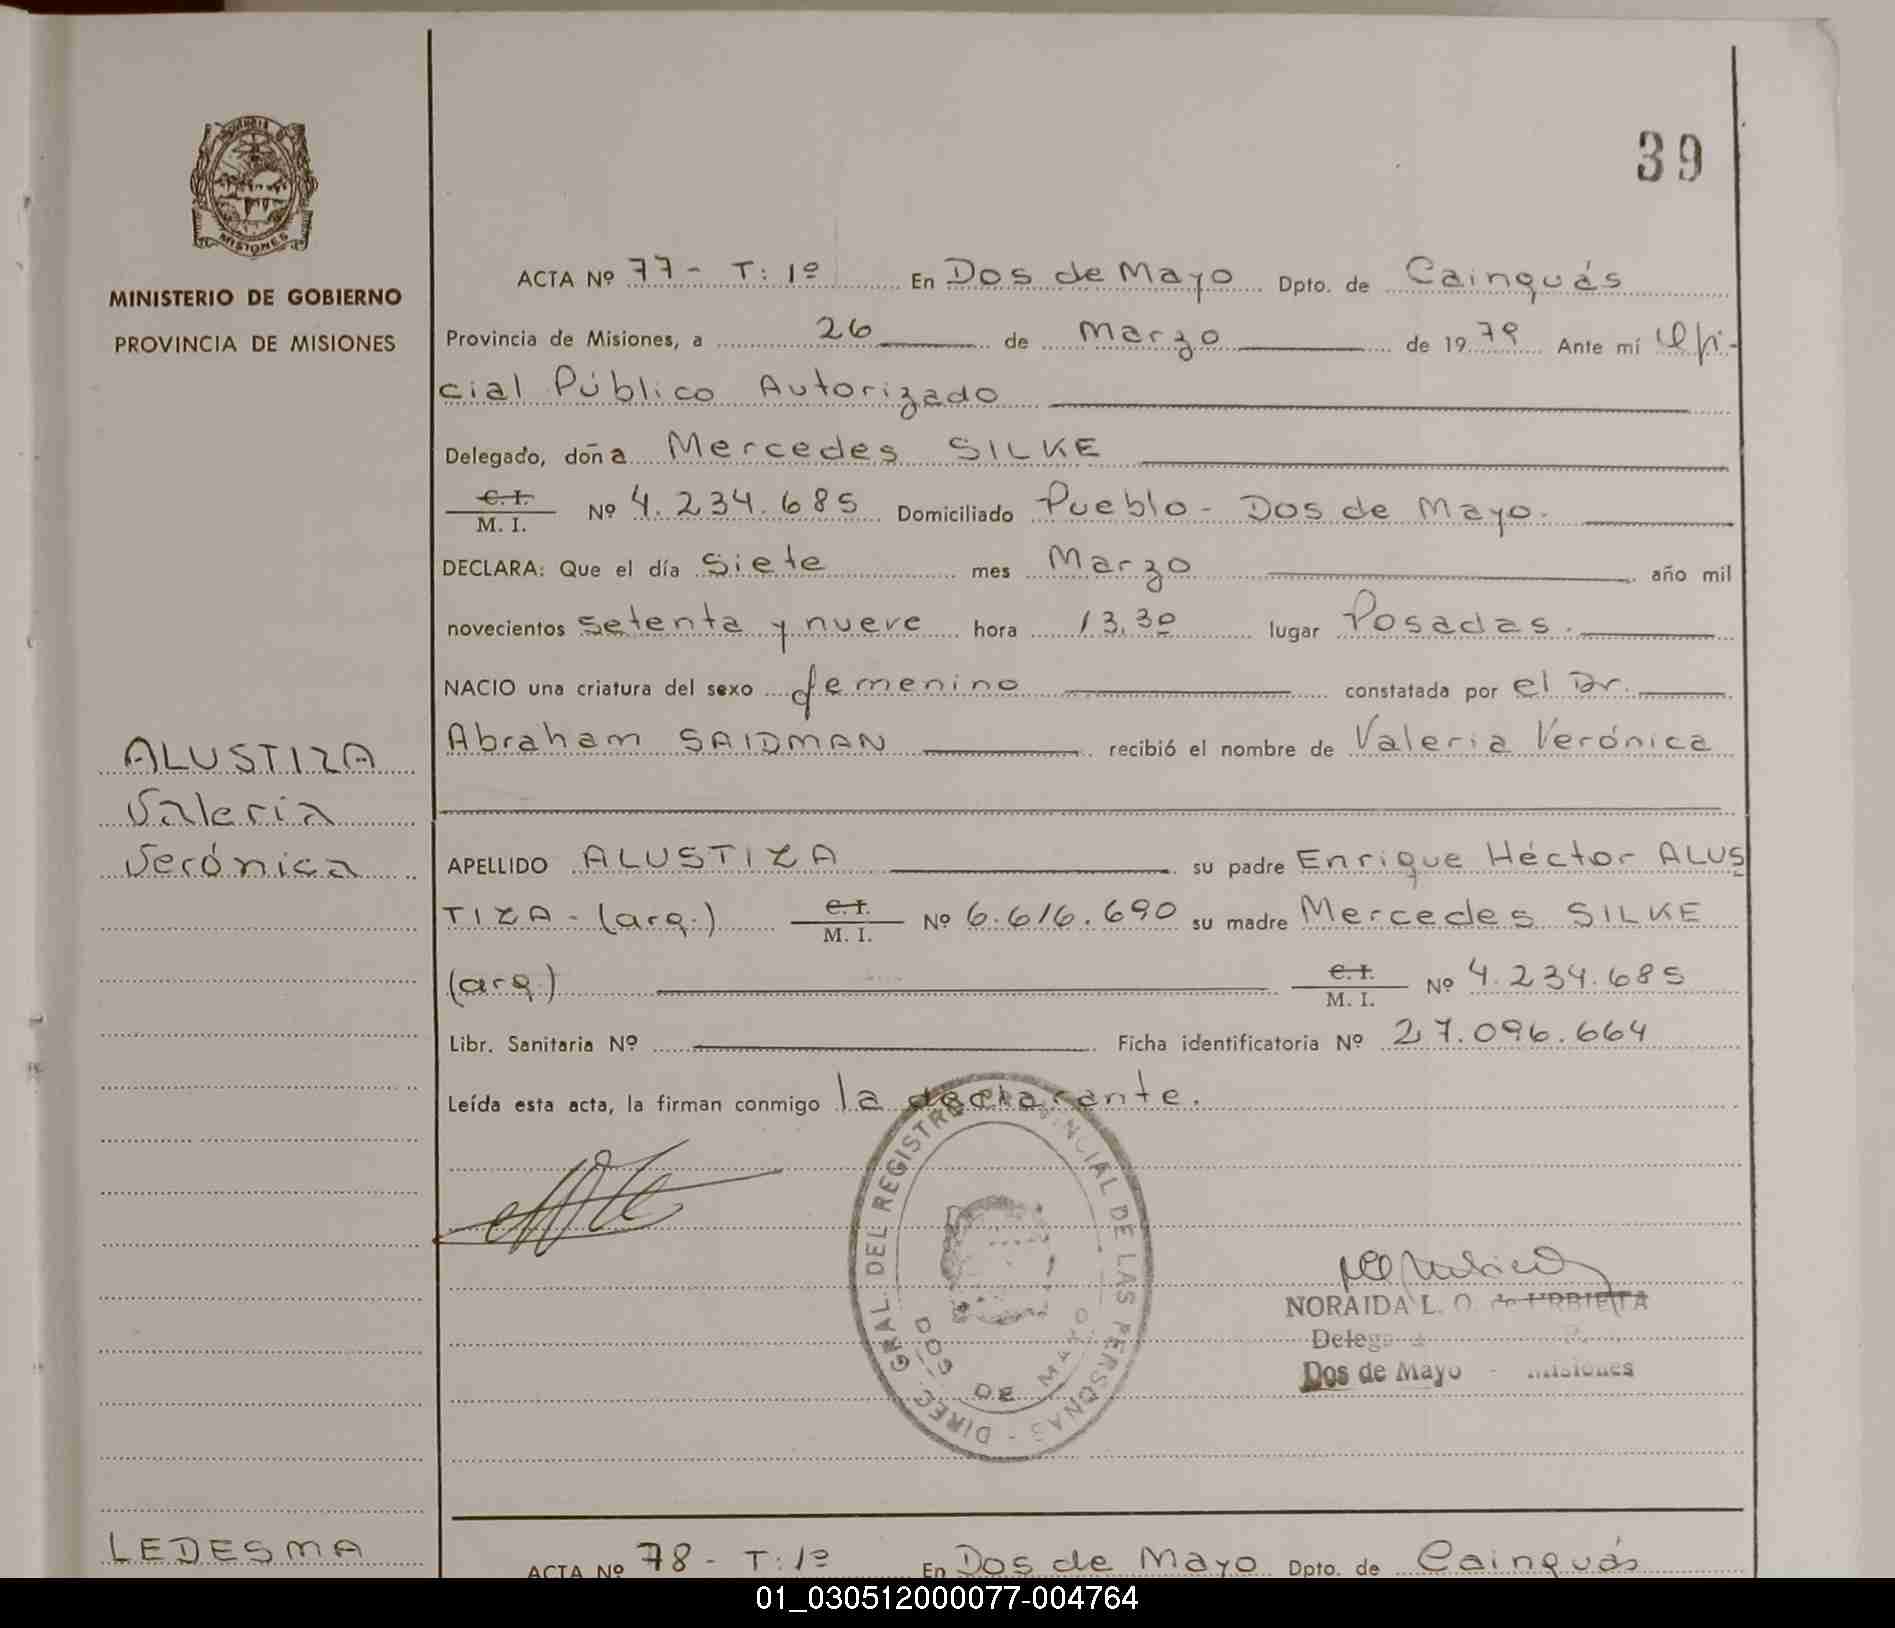 39
MINISTERIO DE GOBIERNO
PROVINCIA DE MISIONES
MISIONES
ACTA Nº 77 - T: 1º En Dos de Mayo Dpto. de Cainguás
Provincia de Misiones, a 26 de Marzo de 1979 Ante mí Ofi-
cial Público Autorizado
Delegado, doña Mercedes SILKE
C. I.
M. I. Nº 4.234.685 Domiciliado Pueblo - Dos de Mayo.
DECLARA: Que el día siete mes Marzo año mil
novecientos setenta y nueve hora 13,30 lugar Posadas.
NACIO una criatura del sexo femenino constatada por el Dr.
Abraham SAIDMAN recibió el nombre de Valeria Verónica
ALUSTIZA
Valeria
Verónica
APELLIDO ALUSTIZA su padre Enrique Héctor ALUS
TIZA - (arg.) C. I.
M. I. Nº 6.616.690 su madre Mercedes SILKE
(arg.) C. I.
M. I. Nº 4.234.685
Libr. Sanitaria Nº Ficha identificatoria Nº 27.096.664
Leída esta acta, la firman conmigo la declarante.
DIREC. GRAL. DEL REGISTRO PROVINCIAL DE LAS PERSONAS -
DOS DE MAYO
NORAIDA L. O. de URBIETA
Dos de Mayo - Misiones
LEDESMA
ACTA Nº 78 - T: 1º En Dos de Mayo Dpto. de Cainguás
01_030512000077-004764